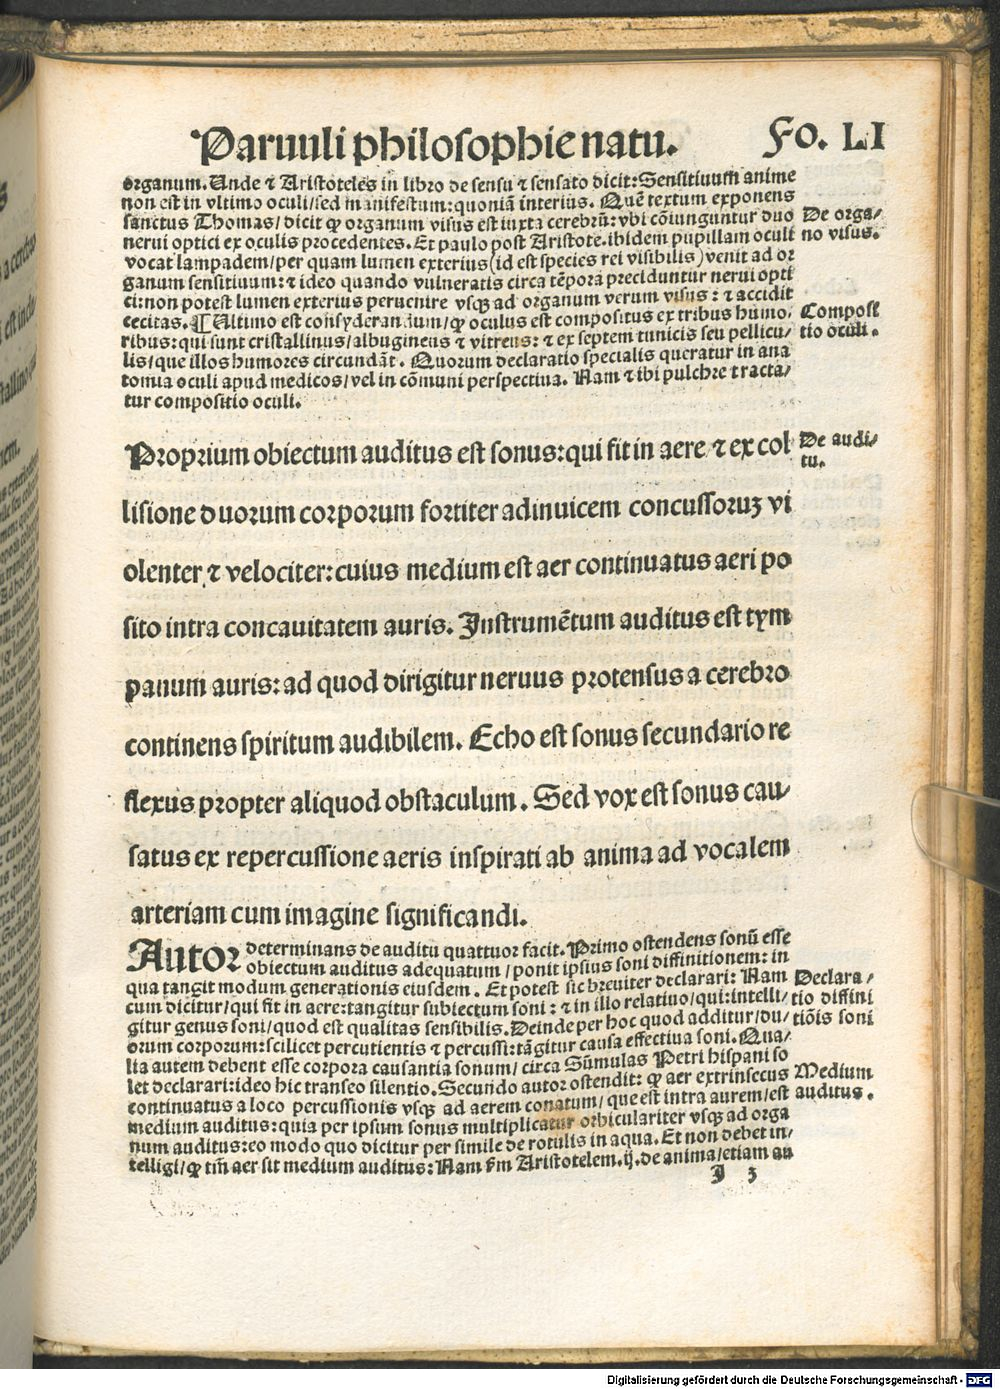 Paruuli philosophie natu. Fo. LI
organum. Unde ⁊ Aristoteles in libro de sensu ⁊ sensato dicit: Sensitiuum anime
non est in vltimo oculi/sed manifestum: quoniā interius. Quē textum exponens
sanctus Thomas/dicit ꝙ organum visus est iuxta cerebrū: vbi cōiunguntur duo
nerui optici ex oculis procedentes. Et paulo post Aristote. ibidem pupillam oculi
vocat lampadem/per quam lumen exterius (id est species rei visibilis) venit ad or
ganum sensitiuum: ⁊ ideo quando vulneratis circa tēpora preciduntur nerui opti
ci: non potest lumen exterius peruenire vsqꝫ ad organum verum visus: ⁊ accidit
cecitas. ¶ Ultimo est consyderandum/ꝙ oculus est compositus ex tribus humo,
ribus: qui sunt cristallinus/albugineus ⁊ vitreus: ⁊ ex septem tunicis seu pellicu/
lis/que illos humores circundāt. Quorum declaratio specialis queratur in ana
tomia oculi apud medicos/vel in cōmuni perspectiua. Nam ⁊ ibi pulchre tracta/
tur compositio oculi.
De orga/
no visus.
Composi
tio oculi.
Proprium obiectum auditus est sonus: qui fit in aere ⁊ ex col
lisione duorum corporum fortiter adinuicem concussoruꝫ vi
olenter ⁊ velociter: cuius medium est aer continuatus aeri po
sito intra concauitatem auris. Instrumētum auditus est tym
panum auris: ad quod dirigitur neruus protensus a cerebro
continens spiritum audibilem. Echo est sonus secundario re
flexus propter aliquod obstaculum. Sed vox est sonus cau/
satus ex repercussione aeris inspirati ab anima ad vocalem
arteriam cum imagine significandi.
De audi/
tu.
Autor determinans de auditu quattuor facit. Primo ostendens sonū esse
obiectum auditus adequatum/ponit ipsius soni diffinitionem: in
qua tangit modum generationis eiusdem. Et potest sic breuiter declarari: Nam
cum dicitur/qui fit in aere: tangitur subiectum soni: ⁊ in illo relatiuo/qui: intelli/
gitur genus soni/quod est qualitas sensibilis. Deinde per hoc quod additur/du/
orum corporum: scilicet percutientis ⁊ percussi: tāgitur causa effectiua soni. Qua/
lia autem debent esse corpora causantia sonum/circa Sūmulas Petri hispani so
let declarari: ideo hic transeo silentio. Secundo autor ostendit: ꝙ aer extrinsecus
continuatus a loco percussionis vsqꝫ ad aerem conatum/que est intra aurem/est
medium auditus: quia per ipsum sonus multiplicatur orbiculariter vsqꝫ ad orga
num auditus: eo modo quo dicitur per simile de rotulis in aqua. Et non debet in/
telligi/ꝙ tm̄ aer sit medium auditus: Nam s̄m Aristotelem. ij. de anima/etiam au
Declara/
tio diffini
tiōis soni
Medium
auditus.
I 3
Digitalisierung gefördert durch die Deutsche Forschungsgemeinschaft - DFG